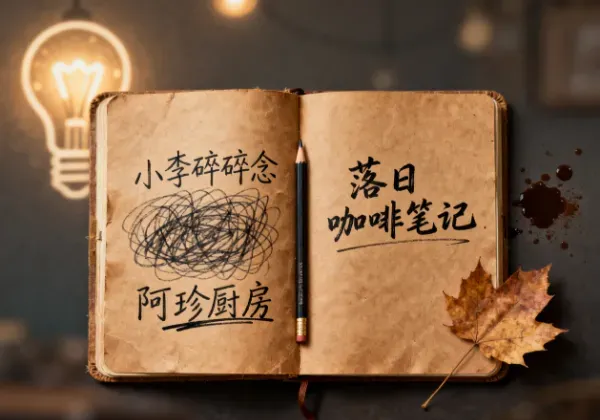 小李碎碎念
阿珍厨房
落日
咖啡笔记